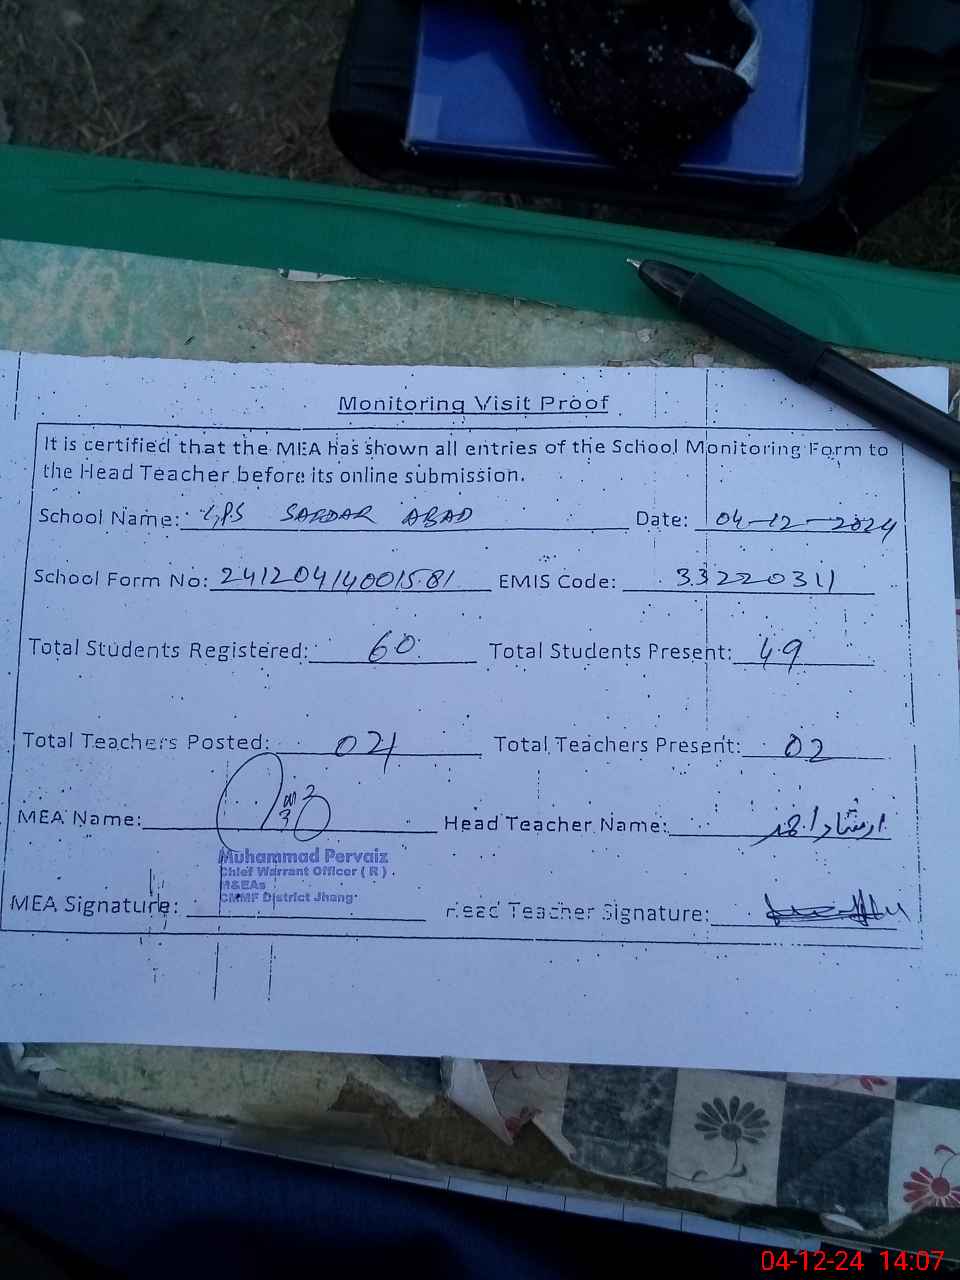 Monitoring Visit Proof
It is certified that the MEA has shown all entries of the School Monitoring Form to
the Head Teacher before its online submission.
School Name: GPS SARDAR ABAD Date: 04-12-2024
School Form No: 24120414001581 EMIS Code: 33220311
Total Students Registered: 60 Total Students Present: 49
Total Teachers Posted: 02 Total Teachers Present: 02
MEA Name: Head Teacher Name: ارشاد احمد
Muhammad Pervaiz
Chief Warrant Officer ( R )
M&EAs
CMMF District Jhang
MEA Signature: Head Teacher Signature:
04-12-24 14:07